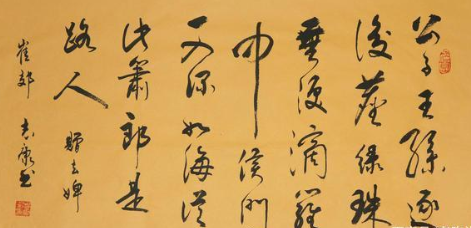 公子王孫逐
後塵綠珠
垂淚滴羅
巾侯門
一入深如海從
此蕭郎是
路人 贈去婢
崔郊 书